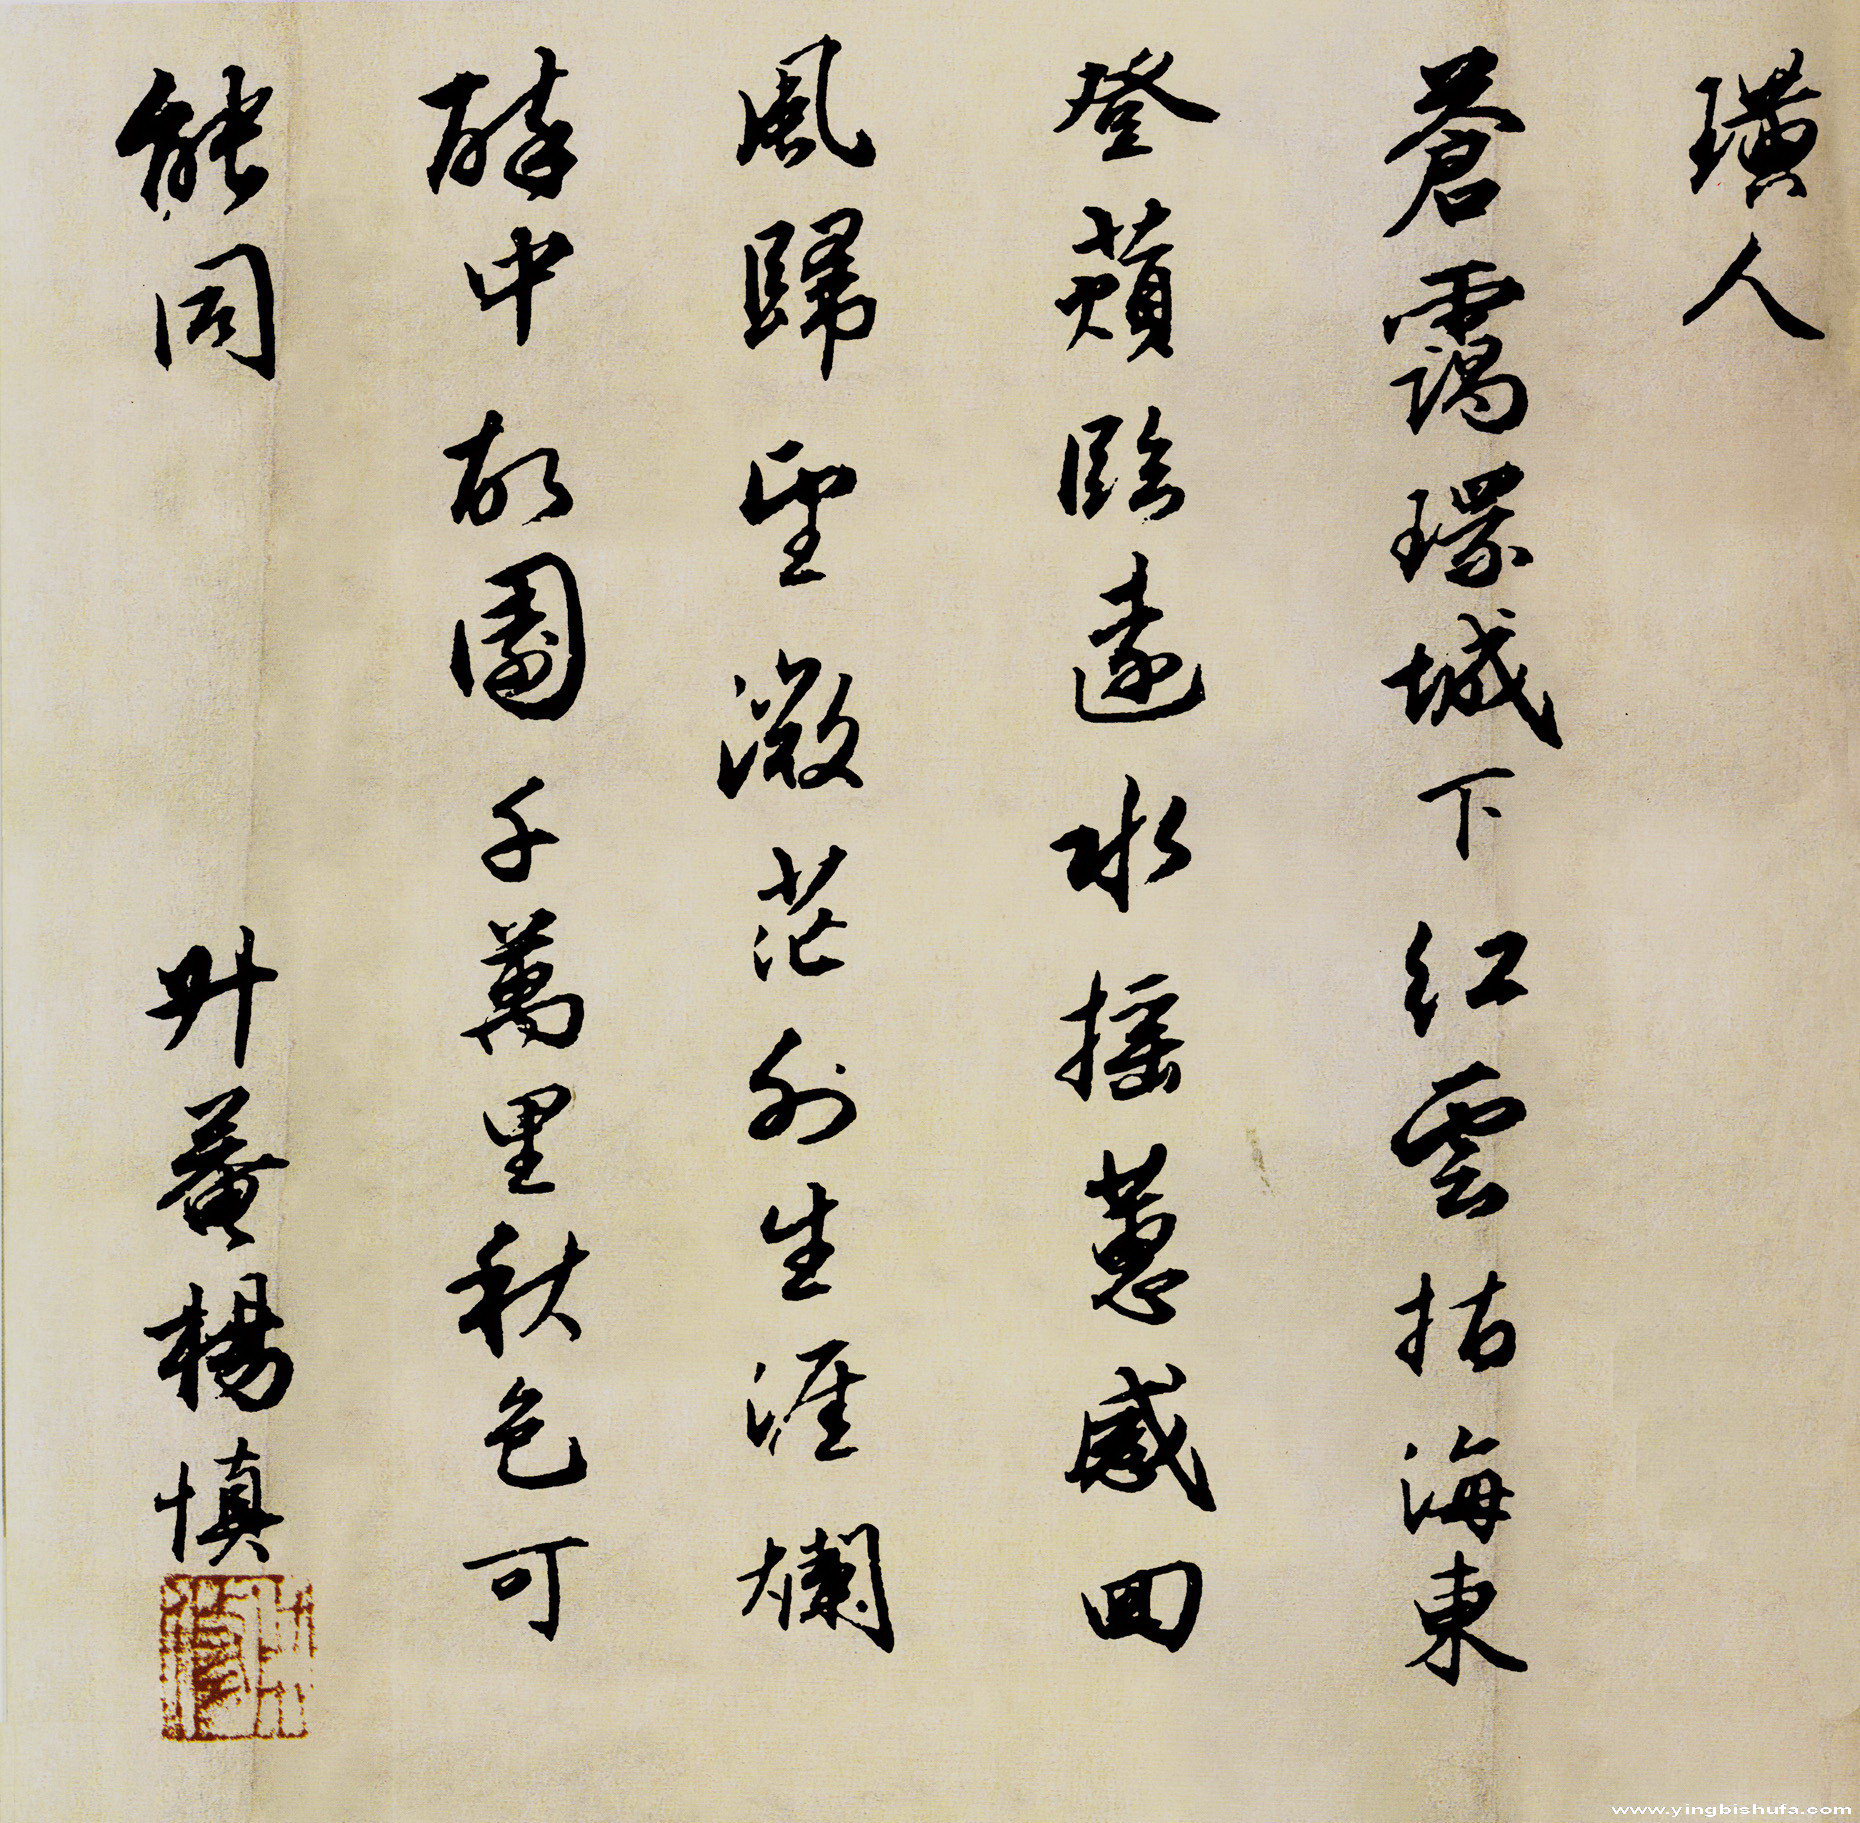 璜人
蒼靄環城下紅雲拮海東
登蘋臨遠水搖蕙感回
風歸望激茫外生涯爛
醉中故園千萬里秋色可
能同
升菴楊慎
www.yingbishufa.com